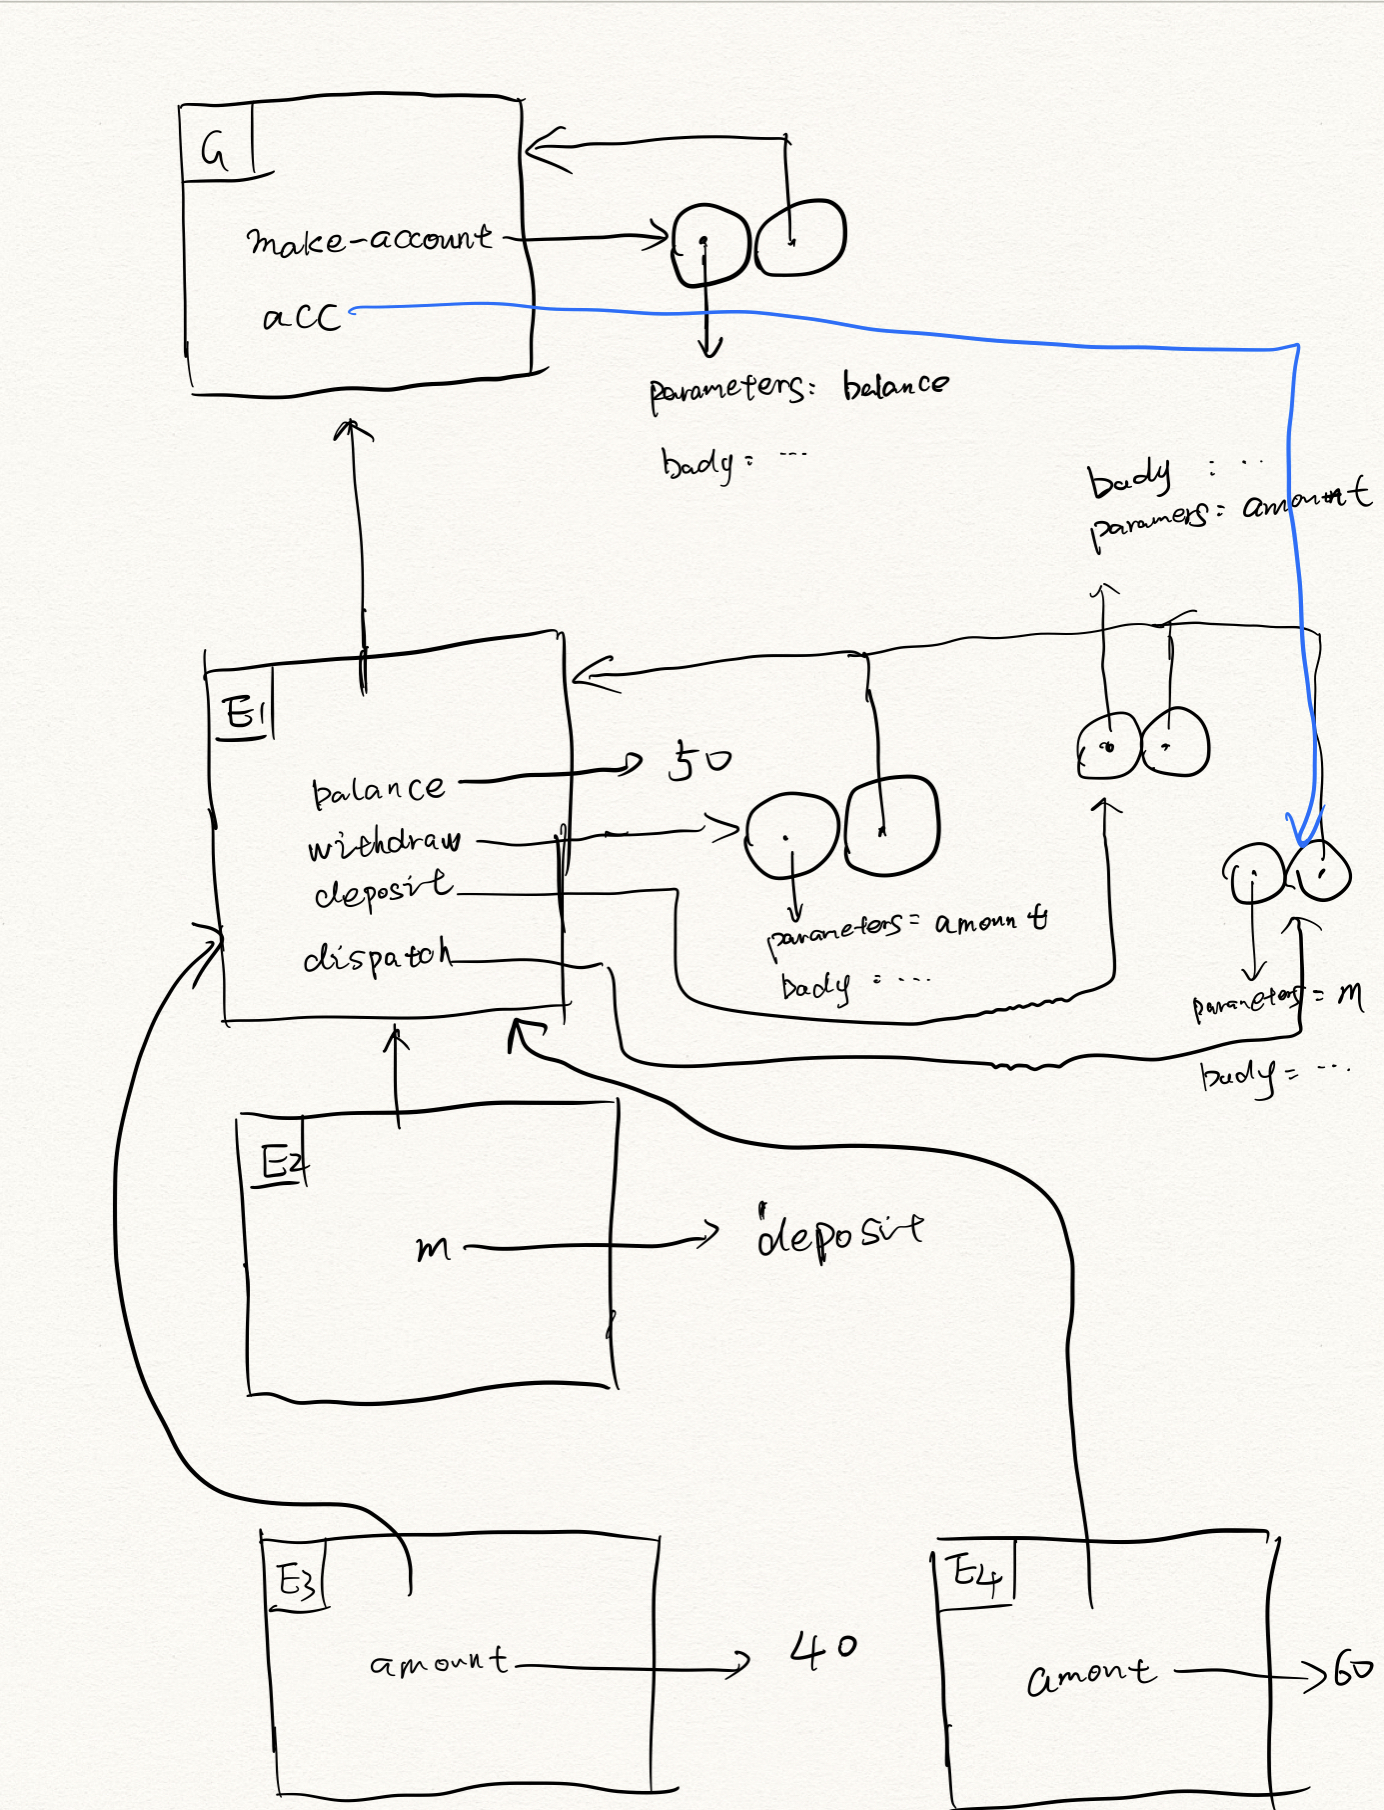 G
make-account
acc
parameters: balance
bady: ...
bady : ..
paramers: amount
E1
balance 50
withdraw
deposit
dispatch
parameters= amount
bady = ...
parameters= m
bady= ...
E2
m 'deposit
E3
amount 40
E4
amont 60